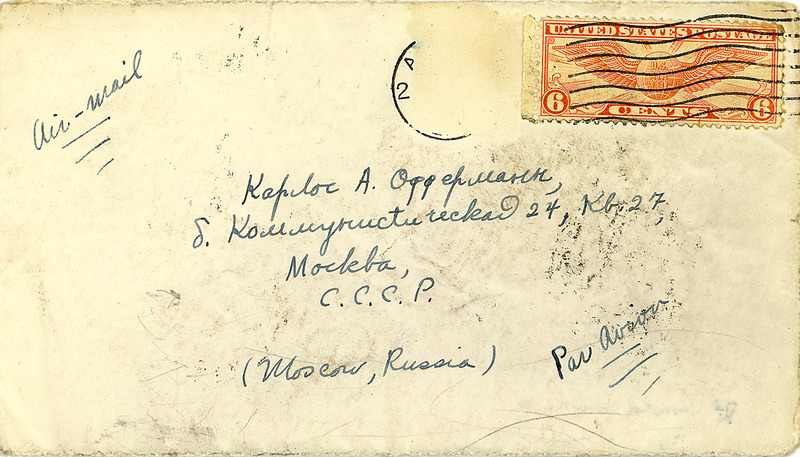 UNITED STATES POSTAGE
U.S.
6 CENTS 6
2
Air-mail
Карлос А. Офферманн,
б. Коммунистическая 24, Кв. 27,
Москва,
С.С.С.Р.
(Moscow, Russia)
Par Avion